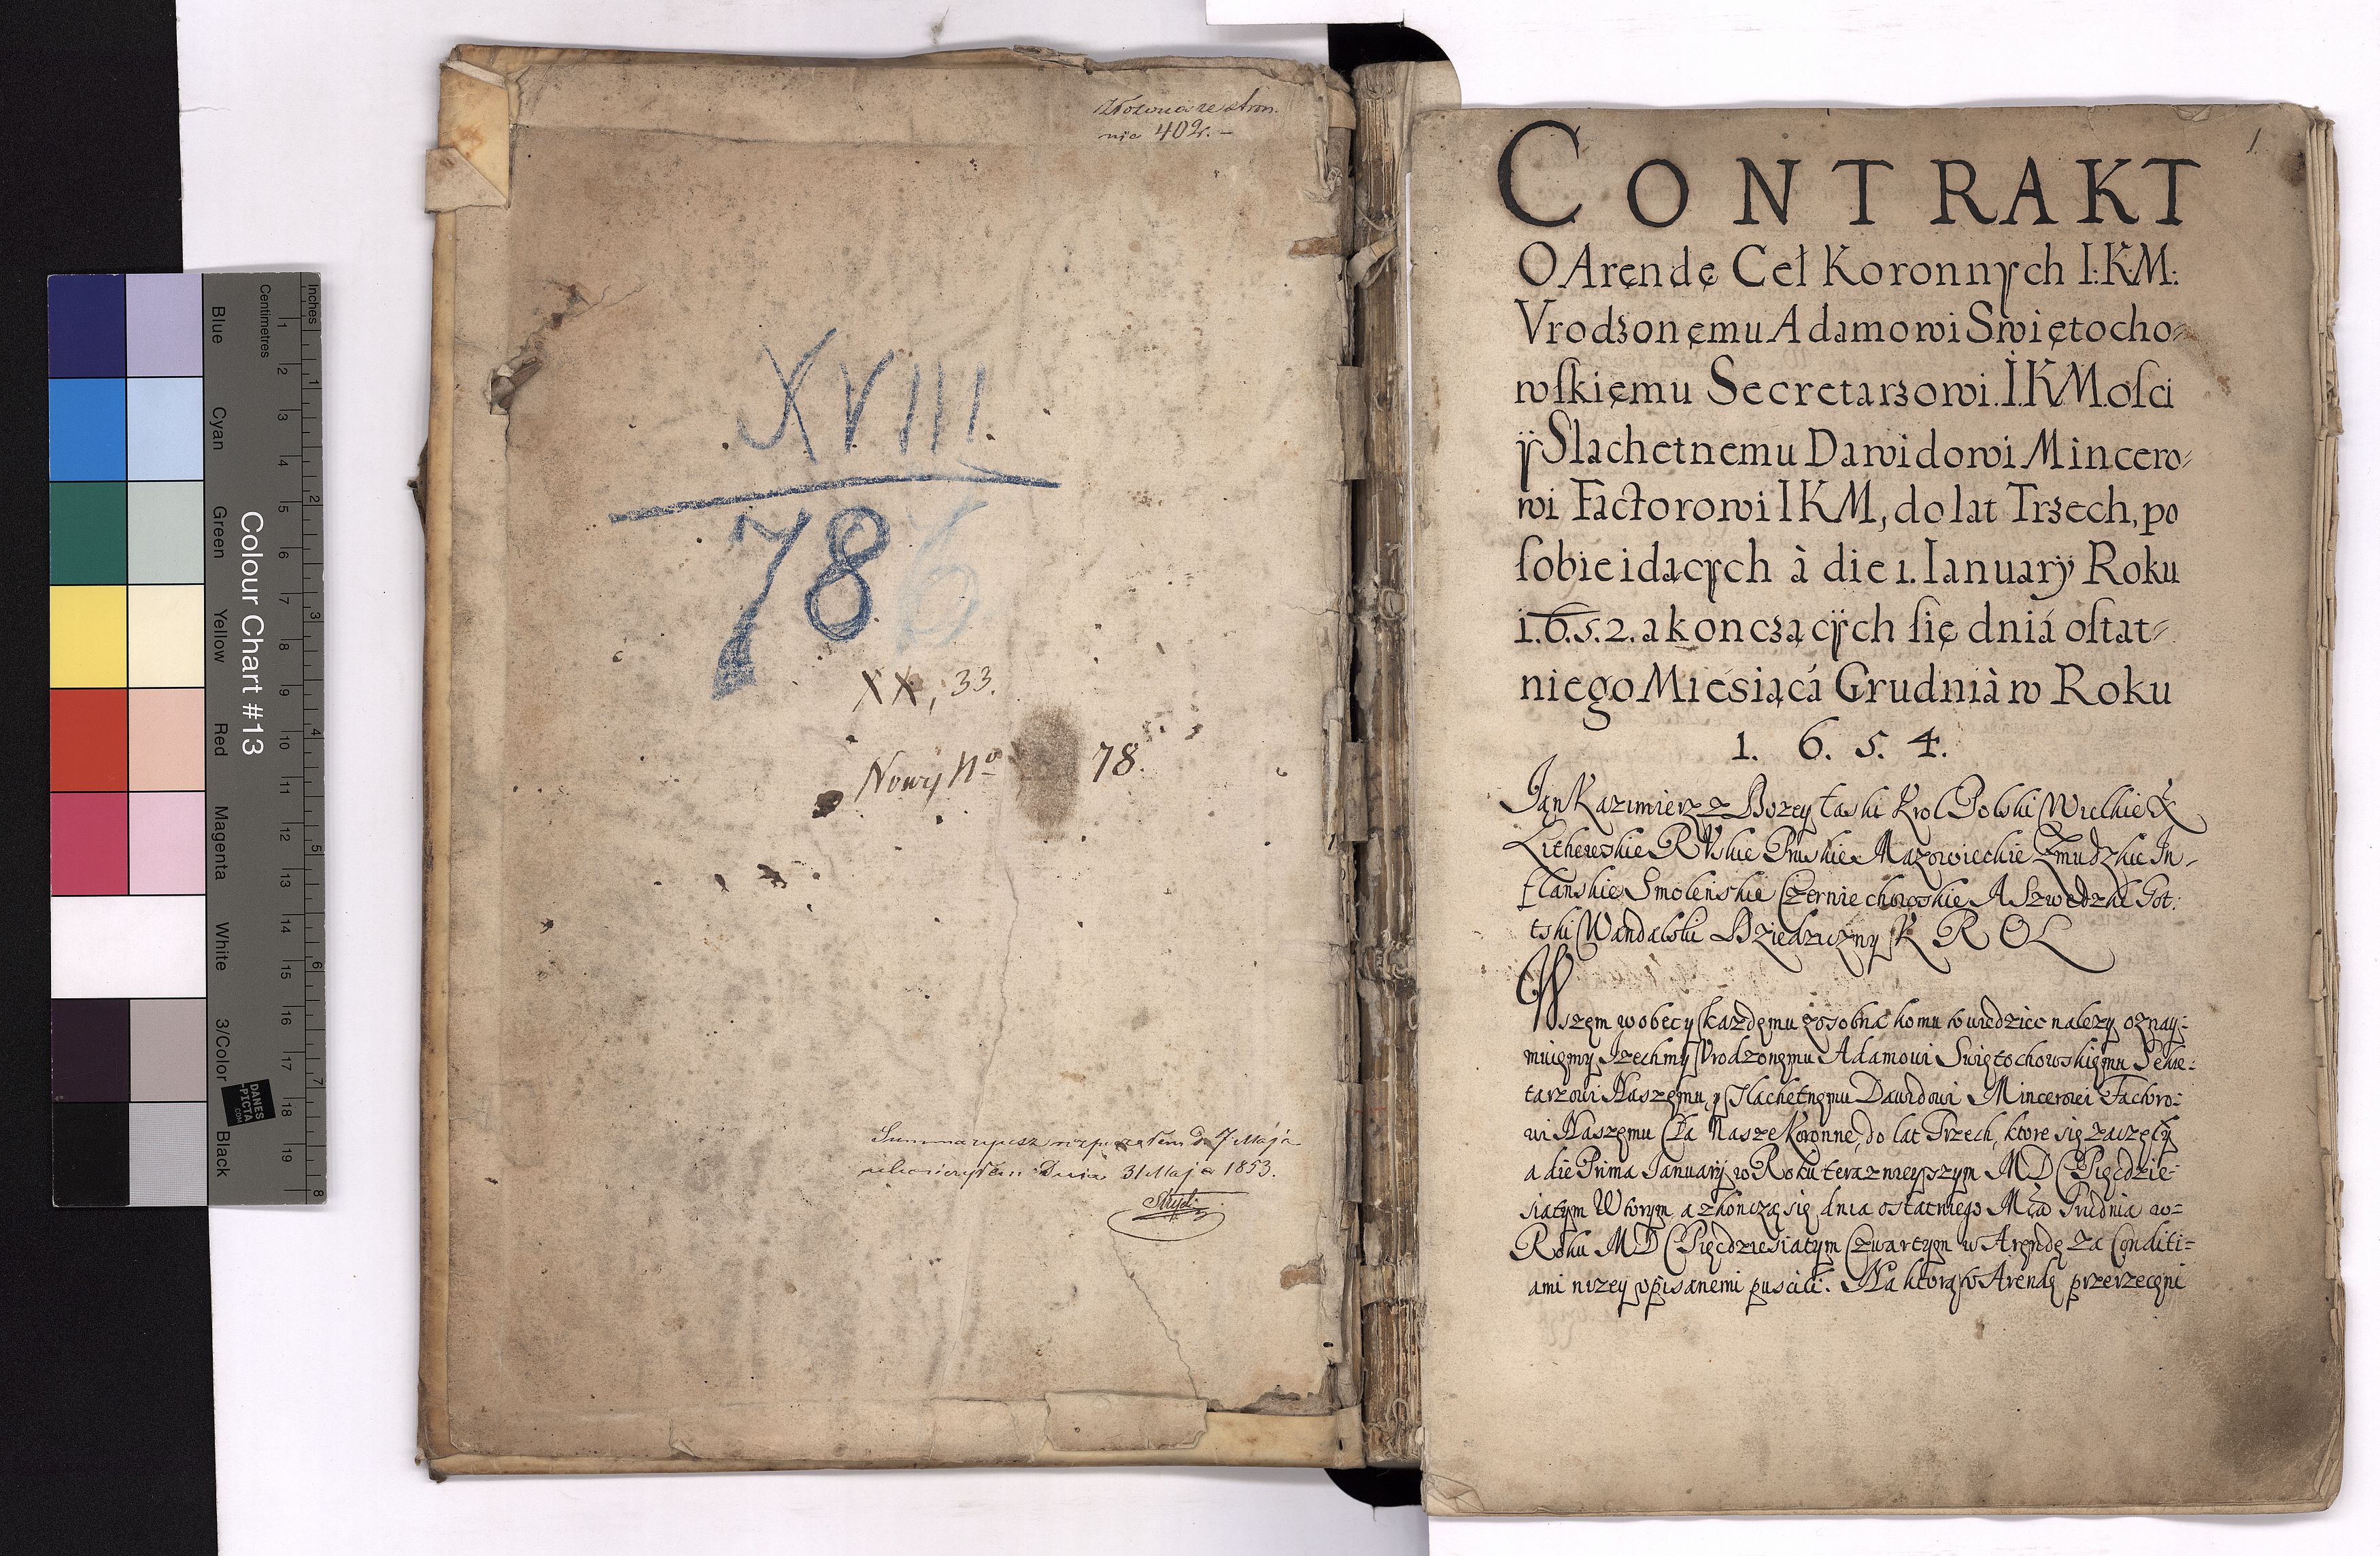 Inches
Centimetres
1 2 3 4 5 6 7 8 9 10 11 12 13 14 15 16 17 18 19
1 2 3 4 5 6 7 8
Colour Chart #13
Blue
Cyan
Green
Yellow
Red
Magenta
White
3/Color
Black
DANES
-PICTA
.COM
nic 402.-
XVIII
78
XX, 33.
Nowy No 78.
Dnia 31 Maja 1853.
1.
CONTRAKT
O Arendę Ceł Koronnych I:K:M:
Vrodzonęmu Adamowi Swiętocho=
wſkięmu Secretarzowi I.K.M.oſci
ÿ Slachetnemu Dawidowi Mincero=
wi Factorowi IKM, do lat Trzech, po
ſobie idącÿch à die 1. Ianuarÿ Roku
1.6.5.2. a konczącÿch ſię dniá oſtat=
niego Miesiącá Grudnià w Roku
1. 6. 5. 4.
Jan Kazimierz z Bozey Łaski Krol Polski Wielkie X
Lithewskie Ruskie Pruskie Mazowieckie Zmudzkie In=
flanskie Smolenskie Czerniechowskie A Szwedzki Got:
tski Wandalski Dziedziczny KROL
Wszem wobec y kazdęmu zosobna komu wiedziec nalezy oznay=
muięmy Izechmy Vrodzonęmu Adamowi Swiętochowskięmu Sekre=
tarzowi Naszęmu, y Slachetnęmu Dawidowi Mincerowi Factoro=
wi Naszęmu Cła Nasze Koronne, do lat Trzech, ktore się zaczęły
a die Prima Januarÿ w Roku teraznieyszym MDC Pięcdzie=
siątym Wtorym a zkonczą się dnia ostatniego Mca Grudnia w=
Roku MDC Pięcdziesiątym Czwartym w Arędę za Conditi=
ami nizey opisanemi puscili: Na ktorą Arendę przerzeczęni